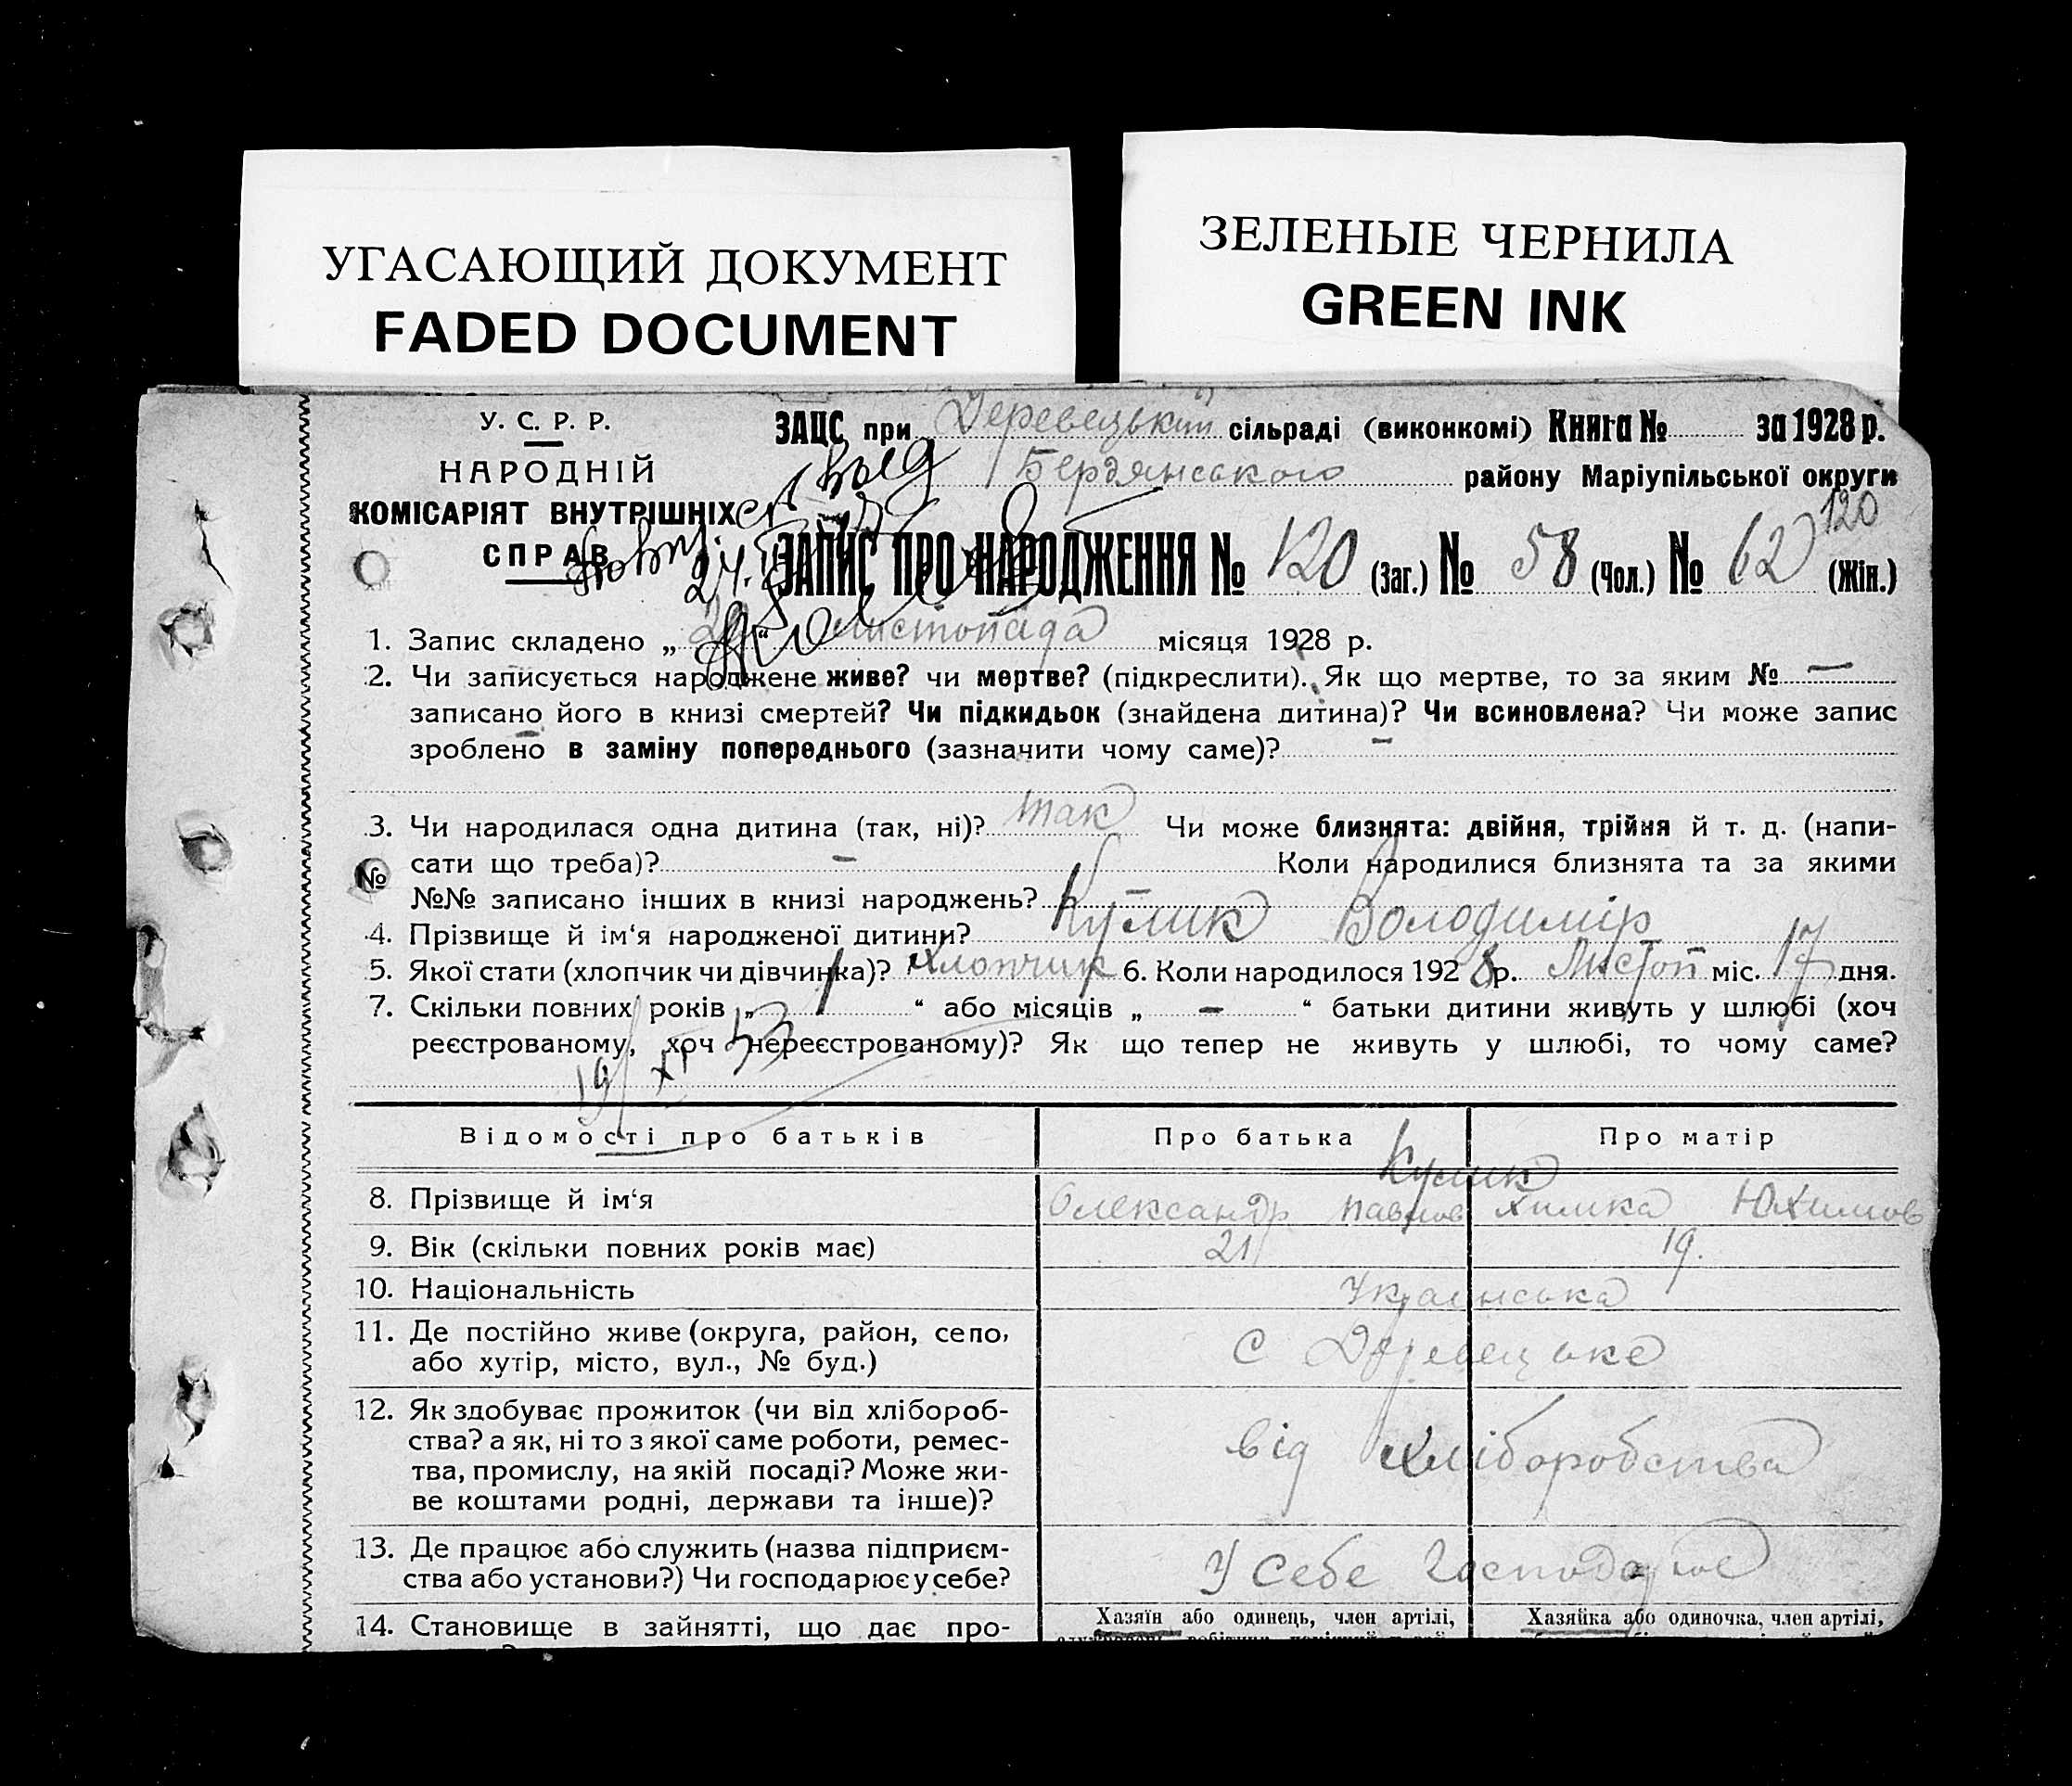 УГАСАЮЩИЙ ДОКУМЕНТ
FADED DOCUMENT
ЗЕЛЕНЫЕ ЧЕРНИЛА
GREEN INK
У. С. Р. Р.
НАРОДНІЙ
КОМІСАРІЯТ ВНУТРІШНІХ
СПРАВ
ЗАЦС при Деревецький сільраді (виконкомі) Книга № за 1928 р.
Бердянського району Маріупільської округи
120
ЗАПИС ПРО НАРОДЖЕННЯ № 120 (Заг.) № 58 (Чол.) № 62 (Жін.)
1. Запис складено „ “ листопада місяця 1928 р.
2. Чи записується народжене живе? чи мертве? (підкреслити). Як що мертве, то за яким № —
записано його в книзі смертей? Чи підкидьок (знайдена дитина)? Чи всиновлена? Чи може запис
зроблено в заміну попереднього (зазначити чому саме)? –
3. Чи народилася одна дитина (так, ні)? так Чи може близнята: двійня, трійня й т. д. (напи-
сати що треба)? – Коли народилися близнята та за якими
№
№№ записано інших в книзі народжень? –
4. Прізвище й ім‘я народженої дитини? Кулик Володимір
5. Якої стати (хлопчик чи дівчинка)? хлопчик 6. Коли народилося 1928 р. Листоп міс. 17 дня.
7. Скільки повних років „ 1 “ або місяців „ – “ батьки дитини живуть у шлюбі (хоч
реєстрованому, хоч нереєстрованому)? Як що тепер не живуть у шлюбі, то чому саме?
19/XI 53
Відомості про батьків Про батька Про матір
Кулик
8. Прізвище й ім‘я Олександр Павлов Химка Юхимов
9. Вік (скільки повних років має) 21 19.
10. Національність Українська
11. Де постійно живе (округа, район, село,
або хутір, місто, вул., № буд.) с Деревецьке
12. Як здобуває прожиток (чи від хлібороб-
ства? а як, ні то з якої саме роботи, ремес-
тва, промислу, на якій посаді? Може жи-
ве коштами родні, держави та інше)?
від хліборобства
13. Де працює або служить (назва підприєм-
ства або установи?) Чи господарює у себе?
У себе господарює
14. Становище в зайнятті, що дає про-
Хазяїн або одинець, член артілі,
Хазяйка або одиночка, член артілі,